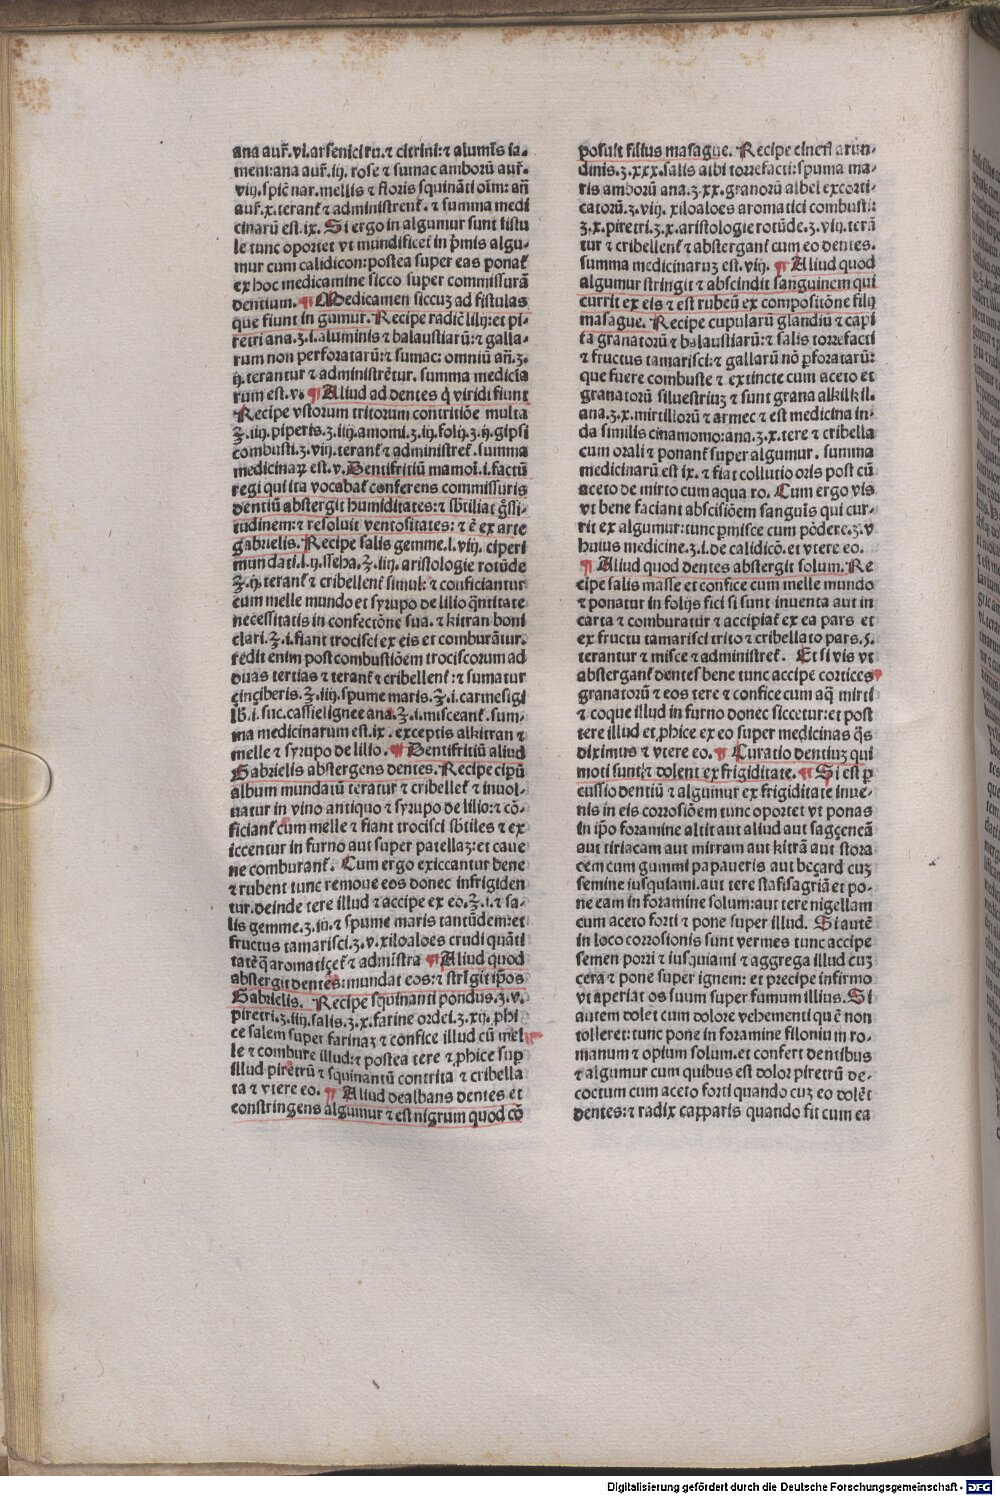 ana aur̃.vi.arſenici ru.⁊ citrini:⁊ alumĩs ia-
meni:ana aur̃.iij. roſe ⁊ ſumac amborũ aur̃.
viij.ſpic̃ nar.mellis ⁊ floris ſquinãti oĩm: añ
aur̃.x.terant̃ ⁊ adminiſtrent̃. ⁊ ſumma medi
cinarũ eſt.ix. Si ergo in algumur ſunt fiſtu
le tunc oportet vt mundificet̃ in p̃mis algu-
mur cum calidicon:poſtea ſuper eas ponat̃
ex hoc medicamine ſicco ſuper commiſſurã
dentium. ¶ Medicamen ſiccuꝫ ad fiſtulas
que fiunt in gumur. Recipe radic̃ lilij:et pi-
retri ana.ʒ.i.aluminis ⁊ balauſtiarũ:⁊ galla-
rum non perforatarũ:⁊ ſumac: omniũ añ.ʒ.
ij.terantur ⁊ adminiſtrẽtur. ſumma medicĩa
rum eſt.v. ¶ Aliud ad dentes q̃ viridi fiunt
Recipe vſtorum tritorum contritiõe multa
℥.iiij.piperis.ʒ.iiij.amomi.ʒ.iij.folij.ʒ.ij.gipſi
combuſti.ʒ.viij.terant̃ ⁊ adminiſtret̃.ſumma
medicinaꝝ eſt.v. Dentifritiũ mamoĩ.i.factũ
regi qui ita vocabat̃ conferens commiſſuris
dentiũ abſtergit humiditates:⁊ ſbtiliat g̃ſſi-
tudinem:⁊ reſoluit ventoſitates:⁊ ẽ ex arte
gabrielis. Recipe ſalis gemme.l.viij. ciperi
mundati.l.ij.ſſeha.℥.iiij.ariſtologie rotũde
℥.ij.terant̃ ⁊ cribellent̃ ſimul:⁊ conficiantur
cum melle mundo et ſyrupo de lilio q̃ntitate
neceſſitatis in confectõne ſua. ⁊ kitran boni
clari.℥.i.fiant trociſci ex eis et comburãtur.
redit enim poſt combuſtiõem trociſcorum ad
duas tertias ⁊ terant̃ ⁊ cribellent̃ :⁊ ſumatur
çinçiberis.℥.iiij.ſpume maris.℥.i.carmeſigi
lb̃.i.ſuc.caſſielignee ana.℥.i.miſceant̃.ſum-
ma medicinarum eſt.ix. exceptis alkitran ⁊
melle ⁊ ſyrupo de lilio. ¶ Dentifritiũ aliud
Gabrielis abſtergens dentes. Recipe cipũ
album mundatũ teratur ⁊ cribellet̃ ⁊ inuol-
uatur in vino antiquo ⁊ ſyrupo de lilio:⁊ cõ-
ficiant̃ cum melle ⁊ fiant trociſci ſbtiles ⁊ ex
iccentur in furno aut ſuper patellaꝫ:et caue
ne comburant̃. Cum ergo exiccantur bene
⁊ rubent tunc remoue eos donec infrigiden
tur.deinde tere illud ⁊ accipe ex eo.℥.i.⁊ ſa-
lis gemme.ʒ.iij.⁊ ſpume maris tantũdem:et
fructus tamariſci.ʒ.v.xiloaloes crudi quãti
tatẽ q̃ aromatiçet̃ ⁊ admĩſtra ¶ Aliud quod
abſtergit dentes:mundat eos:⁊ ſtrĩgit ip̃os
Gabrielis. Recipe ſquinanti pondus.ʒ.v.
piretri.ʒ.iiij.ſalis.ʒ.x.farine ordei.ʒ.xij.ꝓhi
ce ſalem ſuper farinaꝫ ⁊ confice illud cũ mel
le ⁊ combure illud:⁊ poſtea tere ⁊ ꝓhice ſuꝑ
illud piretrũ ⁊ ſquinantũ contrita ⁊ cribella
ta ⁊ vtere eo. ¶ Aliud dealbans dentes et
conſtringens algumur ⁊ eſt nigrum quod cõ
poſuit filius maſague. Recipe cineri̇̃ arun-
dinis.ʒ.xxx.ſalis albi torrefacti:ſpuma ma-
ris amborũ ana.ʒ.xx.granorũ albel excorti-
catorũ.ʒ.viij. xiloaloes aromatici combuſti:
ʒ.x.piretri.ʒ.x.ariſtologie rotũde.ʒ.viij.terã
tur ⁊ cribellent̃ ⁊ abſtergant̃ cum eo dentes.
ſumma medicinaruꝫ eſt.viij. ¶ Aliud quod
algumur ſtringit ⁊ abſcindit ſanguinem qui
currit ex eis ⁊ eſt rubeũ ex compoſitõne filij
maſague. Recipe cupularũ glandiũ ⁊ capi
ta granatorũ ⁊ balauſtiarũ:⁊ ſalis torrefacti
⁊ fructus tamariſci:⁊ gallarũ nõ ꝑforatarũ:
que fuere combuſte ⁊ extincte cum aceto et
granatorũ ſilueſtriuꝫ ⁊ ſunt grana alkilkil.
ana.ʒ.x.mirtillorũ ⁊ armec ⁊ eſt medicina in-
da ſimilis cinamomo:ana.ʒ.x.tere ⁊ cribella
cum orali ⁊ ponant̃ ſuper algumur. ſumma
medicinarũ eſt ix. ⁊ fiat collutio oris poſt cũ
aceto de mirto cum aqua ro. Cum ergo vis
vt bene faciant abſciſiõem ſanguĩs qui cur-
rit ex algumur:tunc ꝑmiſce cum põdere.ʒ.v
huius medicine.ʒ.i.de calidicõ.et vtere eo.
¶ Aliud quod dentes abſtergit ſolum. Re
cipe ſalis maſſe et confice cum melle mundo
⁊ ponatur in folijs fici ſi ſunt inuenta aut in
carta ⁊ comburatur ⁊ accipiat̃ ex ea pars et
ex fructu tamariſci trito ⁊ cribellato pars.ſ.
terantur ⁊ miſce ⁊ adminiſtret̃. Et ſi vis vt
abſtergant̃ dentes bene tunc accipe cortices
granatorũ ⁊ eos tere ⁊ confice cum aq̃ mirti
⁊ coque illud in furno donec ſiccetur:et poſt
tere illud et ꝓhice ex eo ſuper medicinas q̃s
diximus ⁊ vtere eo. ¶ Curatio dentiuꝫ qui
moti ſunt:⁊ dolent ex frigiditate. ¶ Si eſt ꝑ
cuſſio dentiũ ⁊ algumur ex frigiditate inue-
nis in eis corroſiõem tunc oportet vt ponas
in ip̃o foramine altit aut aliud aut ſagçencã
aut tiriacam aut mirram aut kitrã aut ſtora
cem cum gummi papaueris aut beçard cuꝫ
ſemine iuſquiami.aut tere ſtafiſagriã et po-
ne eam in foramine ſolum:aut tere nigellam
cum aceto forti ⁊ pone ſuper illud. Si autẽ
in loco corroſionis ſunt vermes tunc accipe
ſemen porri ⁊ iuſquiami ⁊ aggrega illud cuꝫ
cera ⁊ pone ſuper ignem: et precipe infirmo
vt aperiat os ſuum ſuper fumum illius. Si
autem dolet cum dolore vehementi qui ẽ non
tolleret:tunc pone in foramine filonium ro-
manum ⁊ opium ſolum.et confert dentibus
⁊ algumur cum quibus eſt dolor piretrũ de-
coctum cum aceto forti quando cuꝫ eo dolẽt
dentes:⁊ radix capparis quando fit cum ea
Digitalisierung gefördert durch die Deutsche Forschungsgemeinschaft - DFG